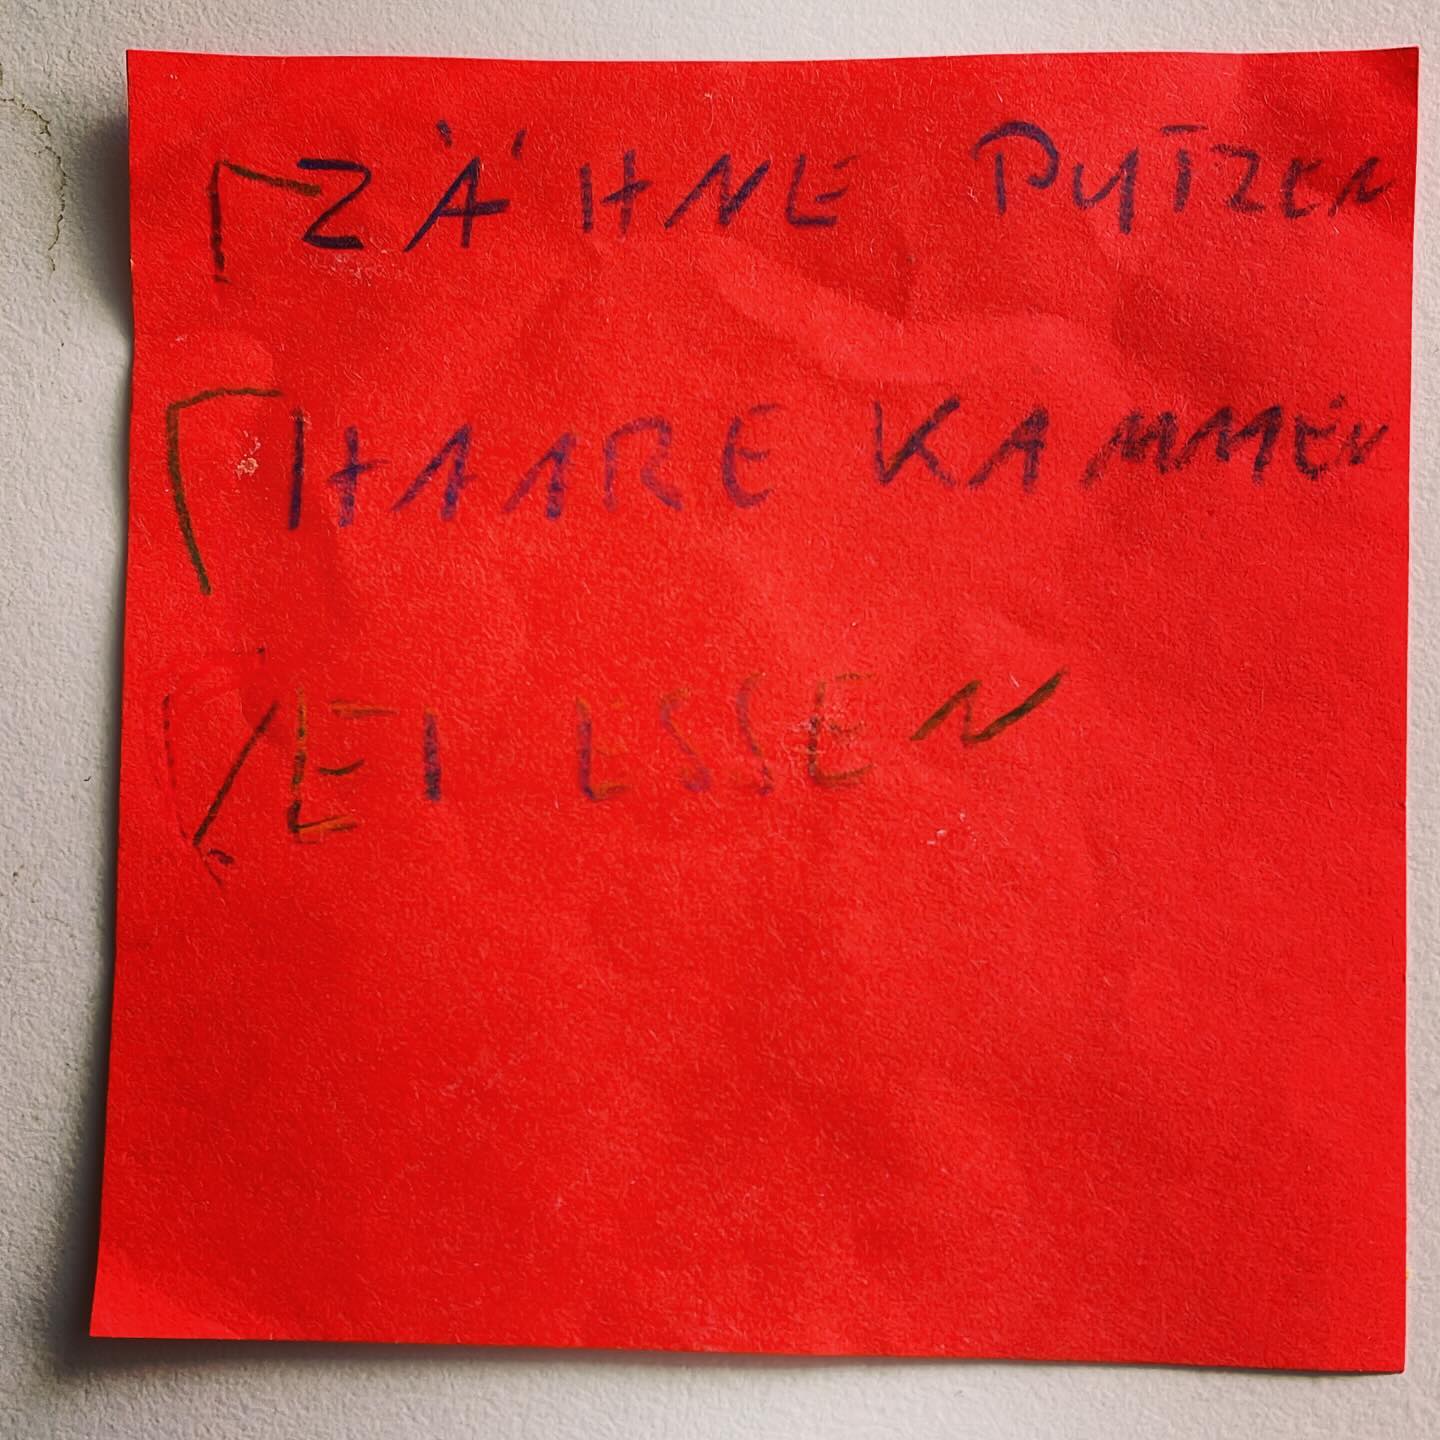 ZÄHNE PUTZEN
HAARE KAMMEN
EI ESSEN